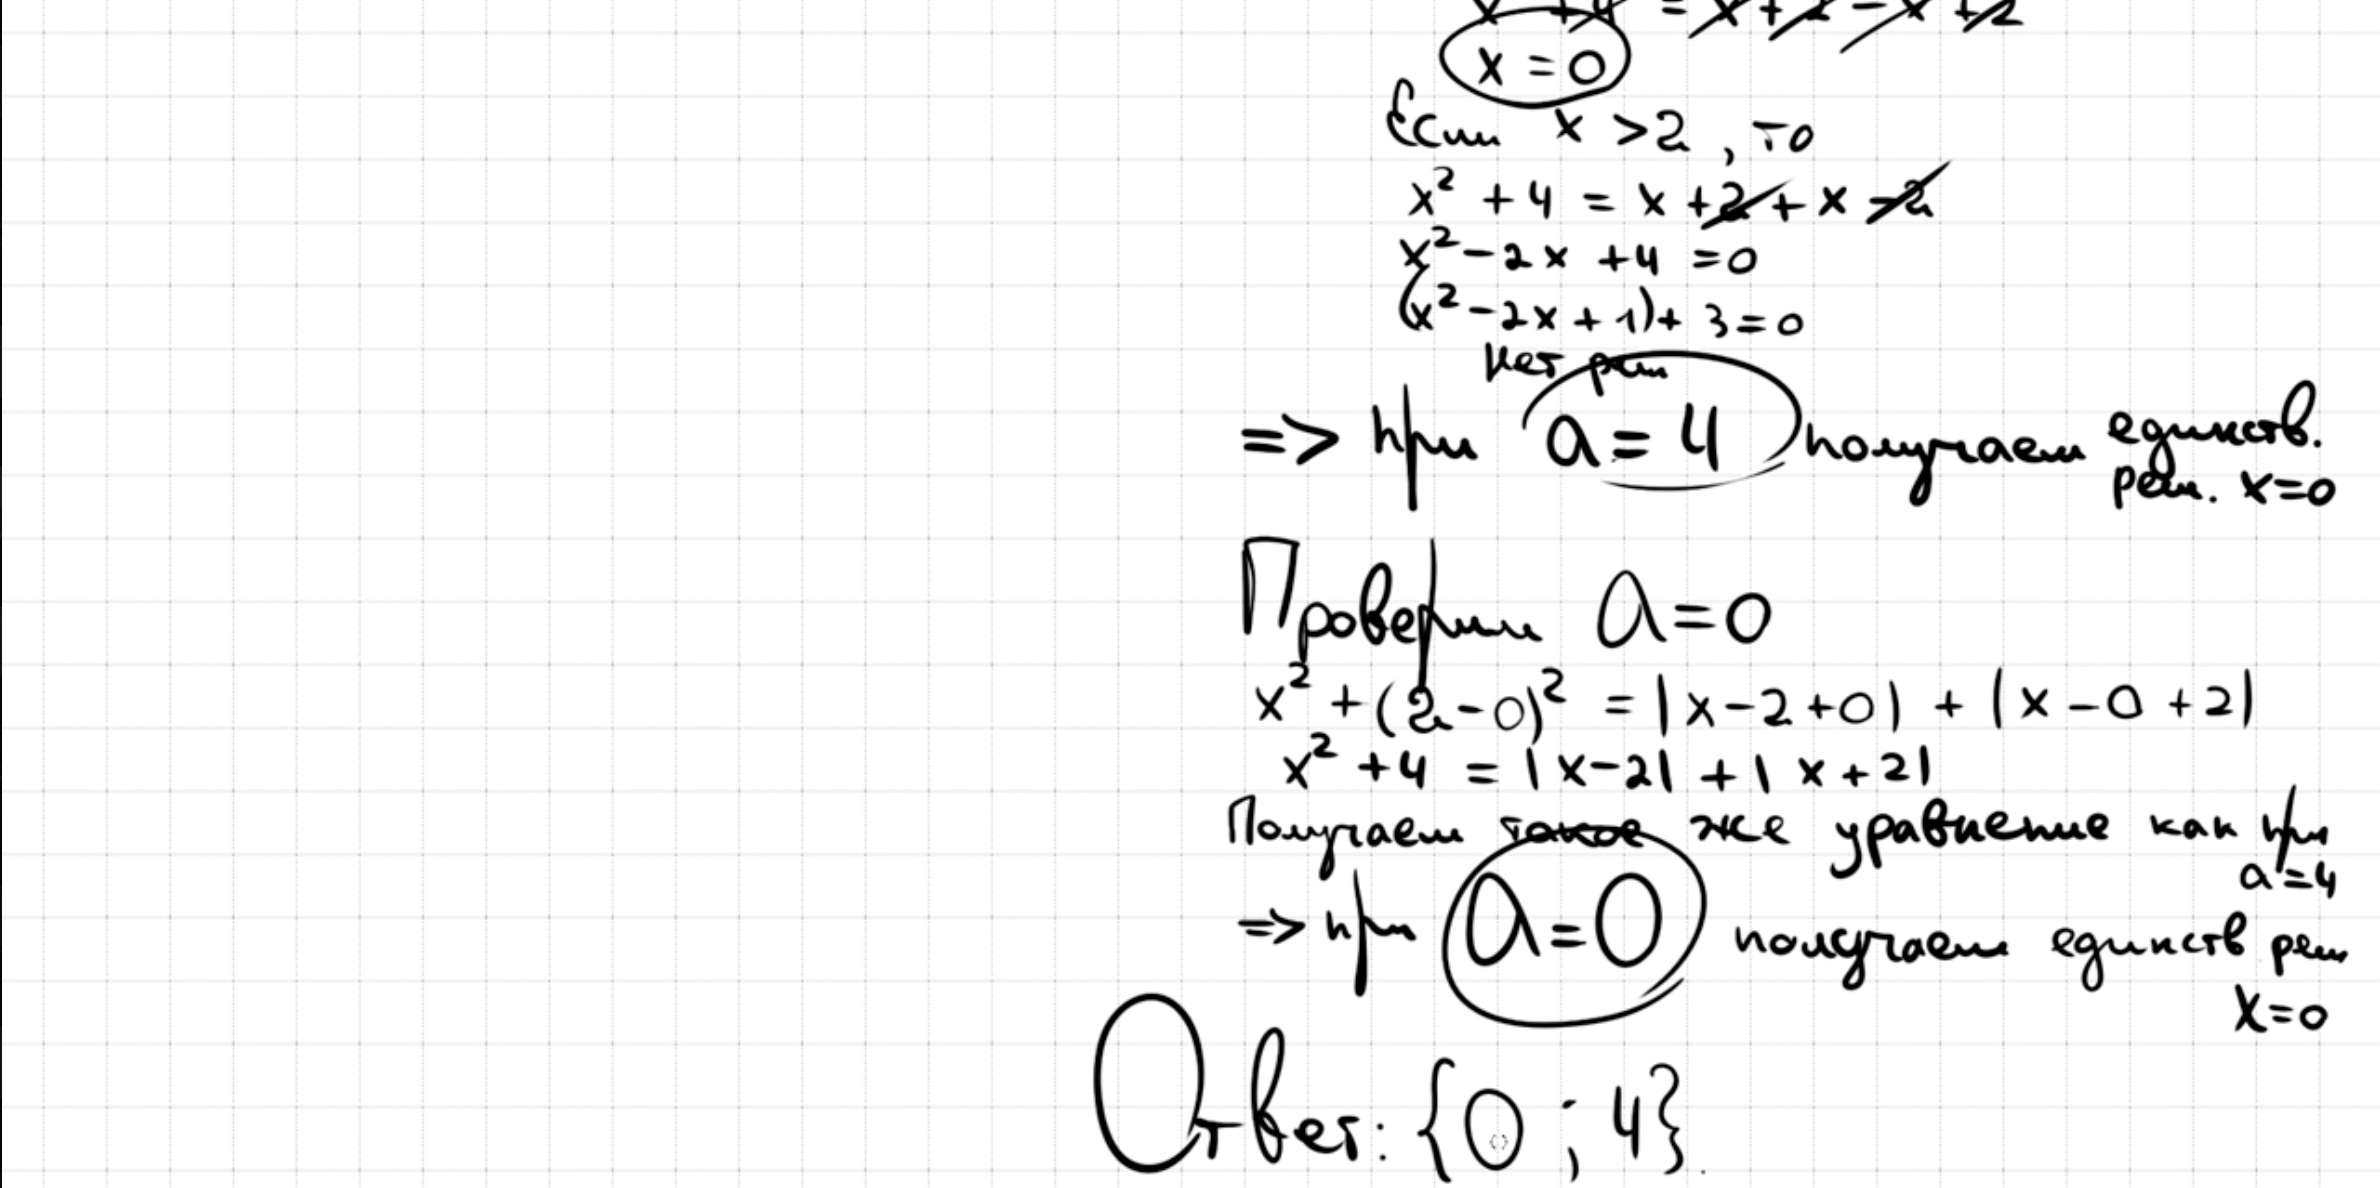 x² + 4 = x + 2 - x + 2
x = 0
Если x > 2, то
x² + 4 = x + 2 + x - 2
x² - 2x + 4 = 0
(x² - 2x + 1) + 3 = 0
нет реш
=> при a = 4 получаем единств.
реш. x = 0
Проверим a = 0
x² + (2 - 0)² = |x - 2 + 0| + |x - 0 + 2|
x² + 4 = |x - 2| + |x + 2|
Получаем такое же уравнение как при
a = 4
=> при a = 0 получаем единств реш
x = 0
Ответ: {0 ; 4}.